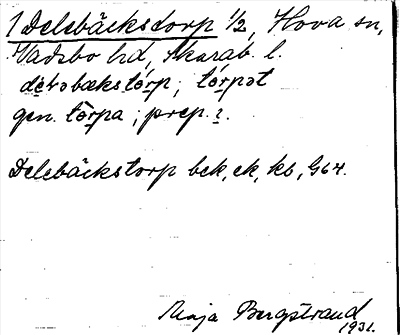 1 Delebäckstorp 1/2, Hova sn,
Vadsbo hd, Skarab. l.
de̱ləbækstó̱rp; tó̱rpət
gen. tò̱rpa; prep. i.
Delebäckstorp bck, ek, kb, G64.
Maja Bergstrand
1931.